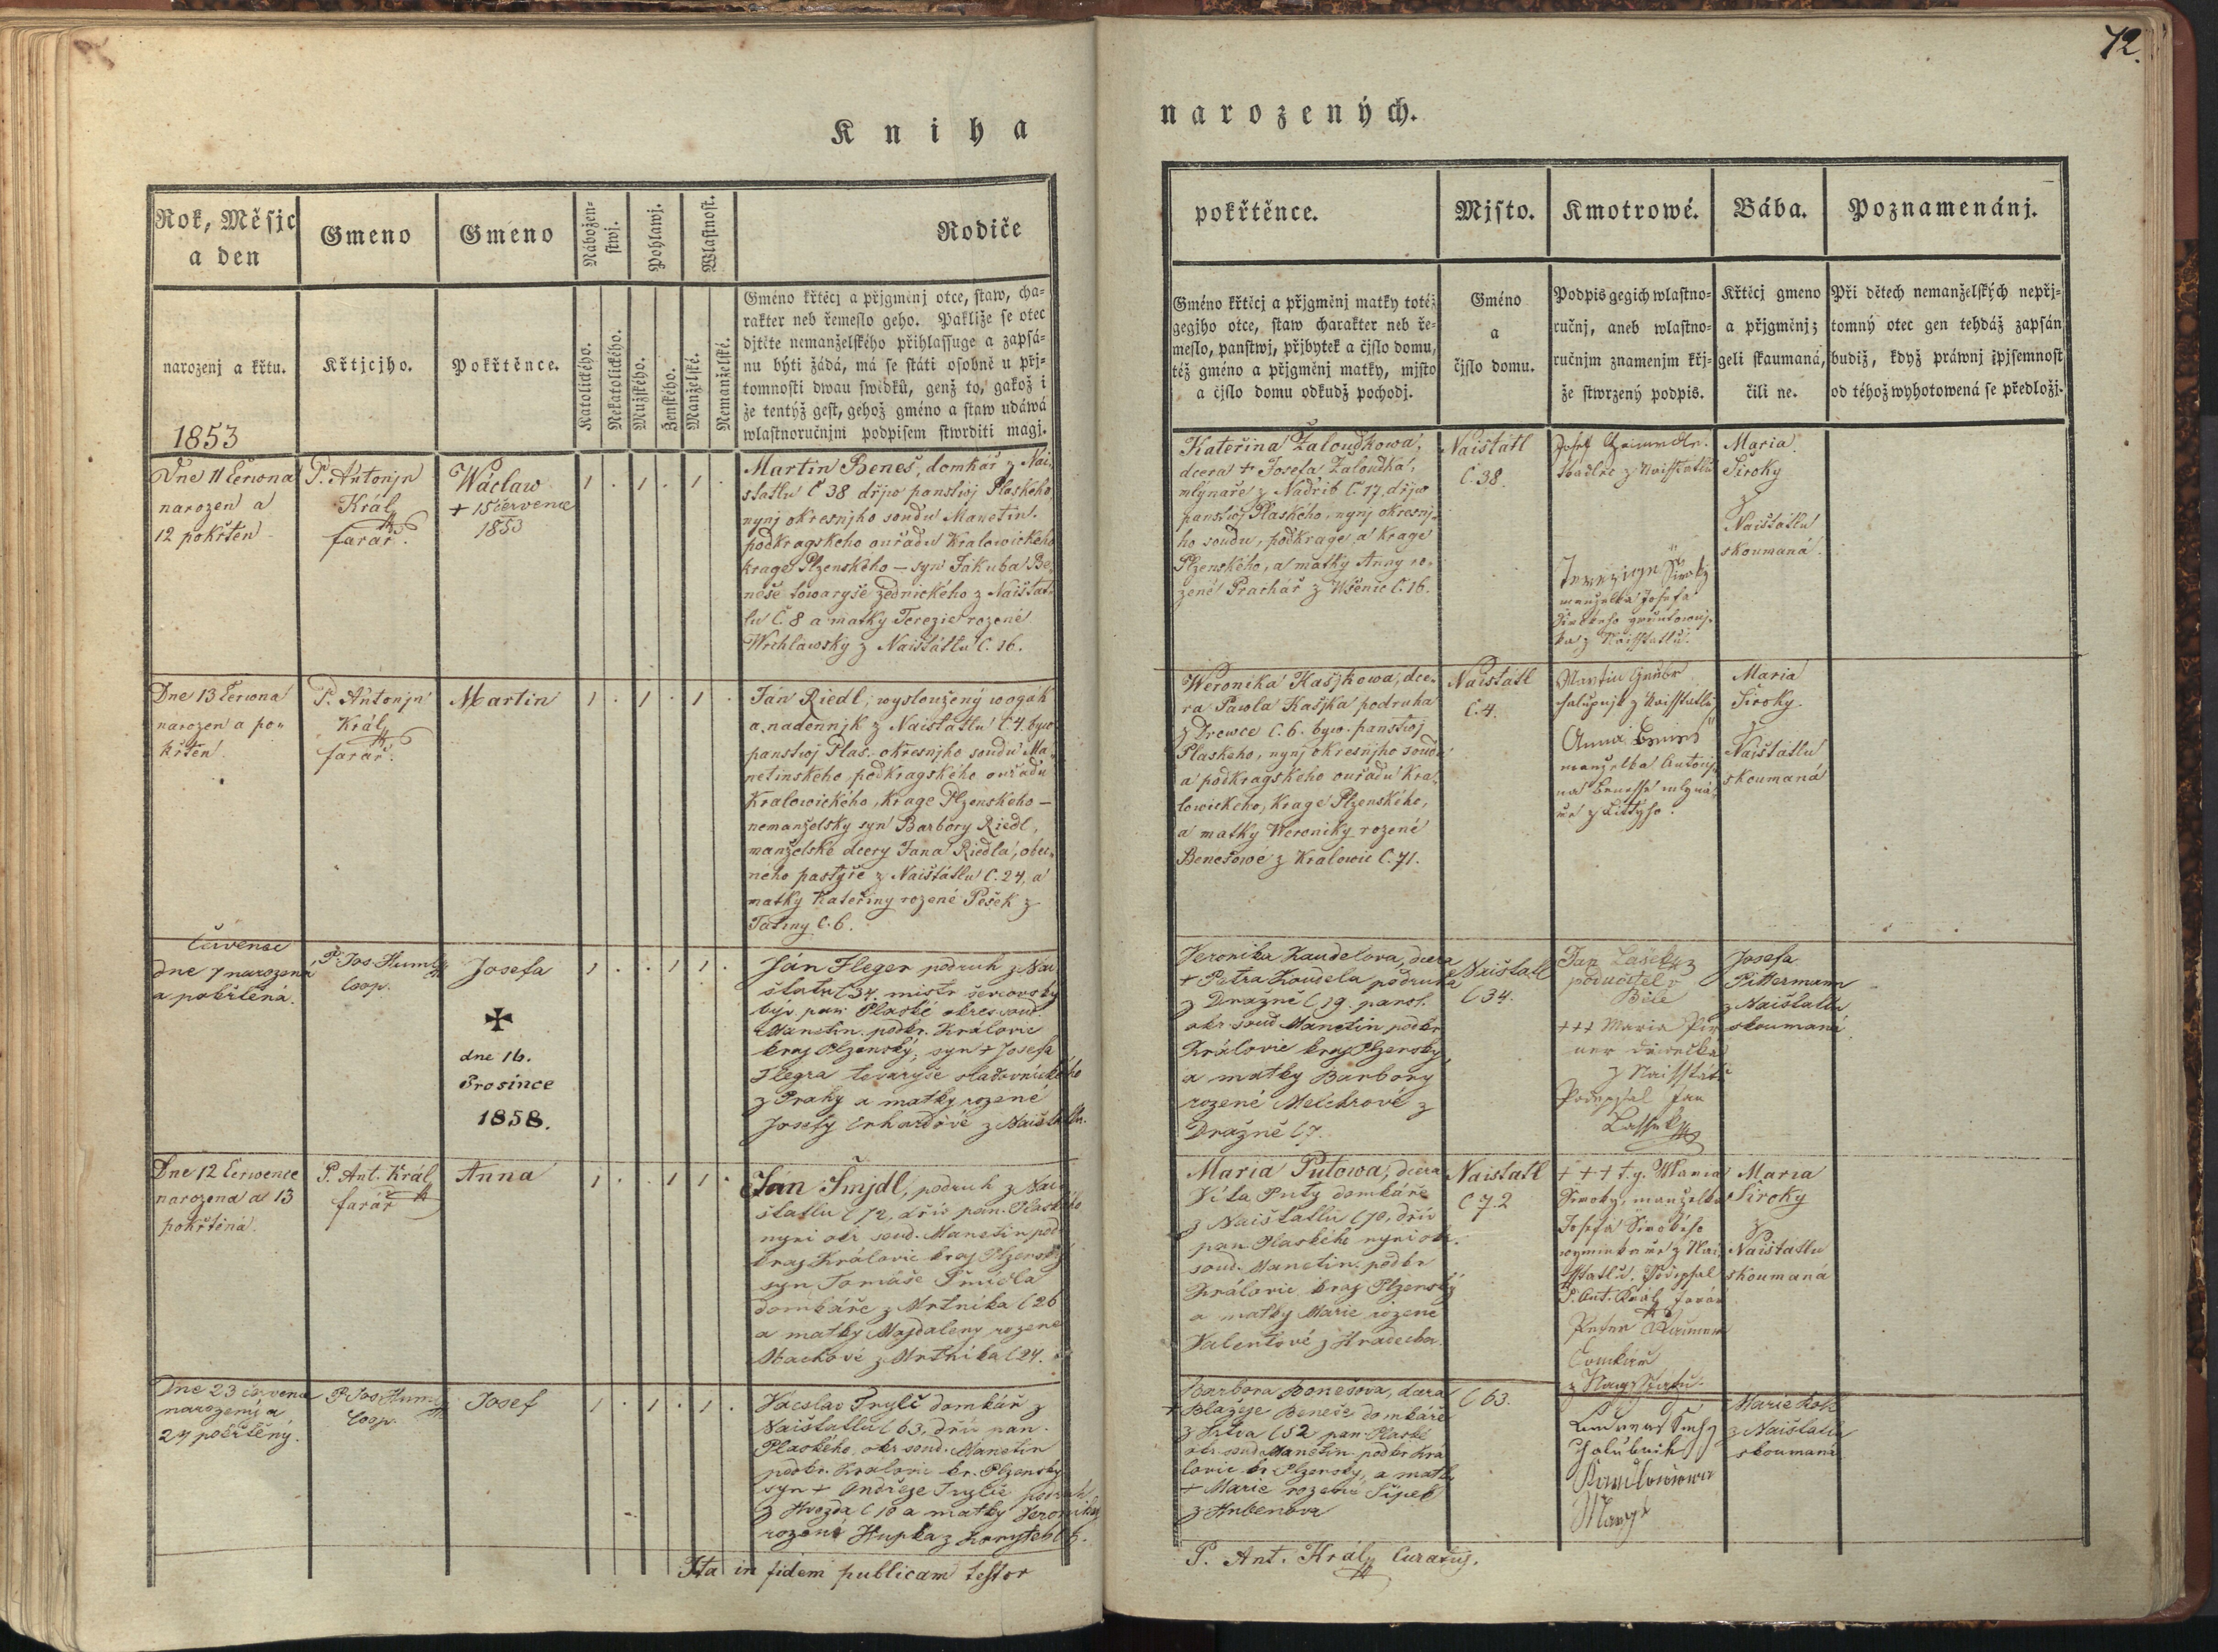 72.
Kniha
narozených.
Rok, Měsjc
a den
narozenj a křtu.
1853
Gmeno
Křtjcjho.
Gméno
Pokřtěnce.
Nábožen-
stwj.
Pohlawj.
Wlastnost.
Katolického.
Nekatolického.
Mužského.
Ženského.
Manželské.
Nemanželské.
Rodiče
Gméno křtěcj a přjgměnj otce, staw, cha-
rakter neb řemeslo geho. Pakliže se otec
djtěte nemanželského přihlassuge a zapsá-
nu býti žádá, má se státi osobně u přj-
tomnosti dwau swědků, genž to, gakož i
že tentýž gest, gehož gméno a staw udáwá
wlastnoručnjm podpisem stwrditi magj.
pokřtěnce.
Gméno křtěcj a přjgměnj matky totéž
gegjho otce, staw charakter neb ře-
meslo, panstwj, přjbytek a čjslo domu,
též gméno a přjgměnj matky, mjsto
a čjslo domu odkudž pochodj.
Mjsto.
Gméno
a
čjslo domu.
Kmotrowé.
Podpis gegich wlastno-
ručnj, aneb wlastno-
ručnjm znamenjm křj-
že stwrzený podpis.
Bába.
Křtěcj gmeno
a přjgměnj;
geli skaumaná,
čili ne.
Poznamenánj.
Při dětech nemanželských nepřj-
tomný otec gen tehdáž zapsán
budiž, když práwnj spjsemnost
od téhož wyhotowená se předložj.
Dne 11 Čerwna
narozen a
12 pokřten
P. Antonjn
Král
farář.
Wáclaw
+ 15 července
1853
1 . 1 . 1 .
Martin Beneš, domkář z Nai-
štatlu Č 38 dřjw panstwj Plaského,
nynj okresnjho soudu Manetin.
podkragského ouřadu Kralowického
krage Plzenského – syn Jakuba Be-
neše towaryše zednického z Naištat-
lu Č. 8 a matky Terezie rozené
Wrchlawsky z Naištátlu Č. 16.
Kateřina Žaloudkowa,
dcera + Josefa Žaloudka,
mlýnaře z Nadrib Č. 17, dřjw
panstwj Plaského, nynj okresnj-
ho soudu, podkrage a krage
Plzenského, a matky Anny ro-
zené Prachář z Wšenic Č. 16.
Naištátl
Č. 38.
Josef
z Naisstatlu
Široky
manželka Josefa
z Naisstatlu.
Maria
Široky
z
Naištátlu
skoumaná.
Dne 13 Čerwna
narozen a po-
křten.
P. Antonjn
Král
farář.
Martin
1 . 1 . 1 .
Ján Riedl, wysloužený wogák
a nadennjk z Naištátlu Č. 4. býw.
panstwj Plas. okresnjho soudu Ma-
netinského, podkragského ouřadu
Kralowického, krage Plzenského –
nemanželsky syn Barbory Riedl,
manželské dcery Jana Riedla, obec-
ného pastýře z Naištátlu Č. 24, a
matky Kateřiny rozené Pešek z
Tatiny Č. 6.
Weronika Kašjkowa, dce-
ra Pawla Kašjka podruha
z Drewce Č. 6. býw. panstwj
Plaského, nynj okresnjho soudu
a podkragského ouřadu Kra-
lowického, krage Plzenského,
a matky Weroniky rozené
Benešowé z Kralowic Č. 71.
Naištátl
Č. 4.
Martin
chalupnjk z Naisstatlu
Anna Beneš
manželka Antonj-
na Benesse mlyná-
ře z
Maria
Široky.
z
Naištátlu
skoumaná
Července
dne 7 narozená
a pokřtěná.
P. Jos Huml
Coop.
Josefa
✠
dne 16.
Prosince
1858.
1 . . 1 1 .
Ján Fleger podruh z Nai-
štatlu Č 34. mistr ševcovský
býv. pan. Plaské okres. soud.
Manetin. podkr. Kralovic
kraj Plzenský, syn + Josefa
Flegra tovaryše sladovnického
z Prahy a matky rozené
Josefy Erhardové z Naištatlu.
Veronika Kaudelova, dcera
+ Petra Koudela podruha
z Dražně Č 19. panst.
okr. soud Manetin podkr.
Královic kraj Plzensky,
a matky Barbory
rozené Melchrové z
Dražně Č 7.
Naištatl
Č 34.
Jan Lašek z
podučitel v
Bíle
+++ Maria
děvečka
z Naisstátl
Podepsal Jan
Lassek
Josefa
Pittermann
z Naištatlu
skoumaná.
Dne 12 Čerwence
narozena a 13
pokřtěná.
P. Ant. Král
farář
Anna
1 . . 1 1 .
Ján Šmjdl, podruh z Nai-
štatlu Č 72, dřív pan. Plaského
nyní okr. soud. Manetin pod
kraj Královic kraj Plzenský
syn Tomáše Šmídla
domkáře z Mrtníka Č 26
a matky Majdaleny rozené
z Mrtníka Č 24.
Maria Putowa, dcera
Víta Puty domkáře
z Naištatlu Č 70, dřív
pan. Plaského nyní okr.
soud. Manetin. podkr.
Královic kraj Plzenský
a matky Marie rozené
Valentové z Hradecka.
Naištatl
Č 72
+ + + t. g. Maria
Široky, manželka
Josefa Širokého
wyminkáře z Nai-
sstatlu. Podepsal
P. Ant. Král farář
Peter
Domkář
Maria
Široky
z
Naištátlu
skoumaná
Dne 23 července
narozený a
24 pokřtěný.
P. Jos Huml
Coop.
Josef
1 . 1 . 1 .
Vácslav Trylč domkář z
Naištatlu Č 63, dřív pan.
Plaského, okr. soud. Manetin
podkr. Kralovic kr. Plzenský
syn + Ondřeje Trylče podruh
z Hvozda Č 10 a matky Veroniky
rozené Hupka z
Barbora Benešova, dcera
+ Blažeje Beneše domkáře
z Č 52 pan. Plaské
okr. soud. Manetin podkr. Krá-
lovic kr. Plzenský, a matky
+ Marie rozené Šípek
z Hubenova
Č 63.
Marie
z Naištatlu
skoumaná
Ita in fidem publicam testor
P. Ant. Král Curatus.